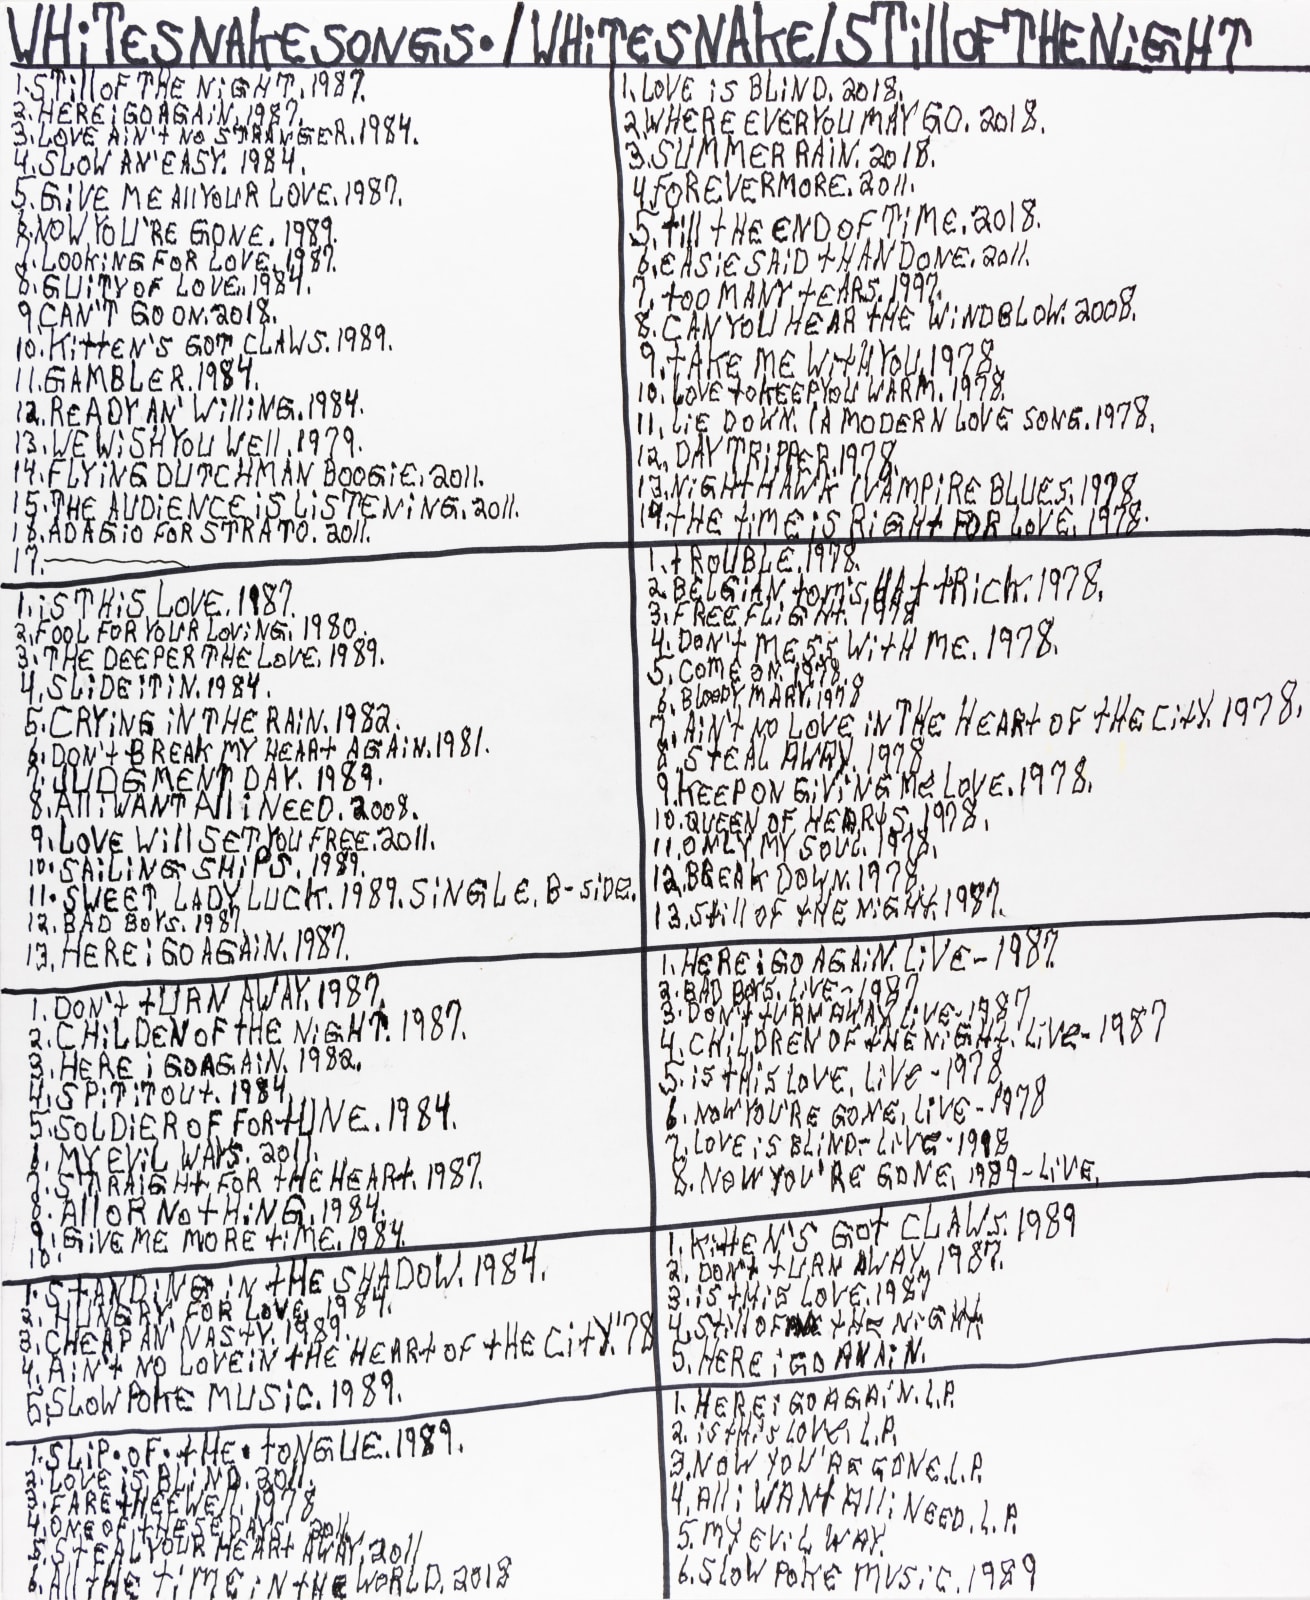 WHiTESNAKESONGS./WHiTESNAKE/STillOFTHENiGHT
1.STillOF THE NiGHT.1987.
2.HERE i GO AGAiN.1987.
3.LOVE AiN't NO STRANGER.1984.
4.SLOW AN'EASY. 1984.
5.GiVE ME AllYOUR LOVE.1987.
6.NOW YOU'RE GONE.1989.
7.LOOKiNG FOR LOVE.1987.
8.GUiTY OF LOVE.1984.
9.CAN'T GO ON.2018.
10.KittEN'S GOT CLAWS.1989.
11.GAMBLER.1984.
12.READY AN' WilliNG.1984.
13.WE WiSH YOU WEll.1979.
14.FLYiNG DUTCHMAN BOOGiE.2011.
15.THE AUDiENCE iS LiSTENiNG.2011.
16.ADAGiO FOR STRATO.2011.
17.
1.iS THiS LOVE.1987.
2.FOOL FOR YOUR LOViNG.1980.
3.THE DEEPER THE LOVE.1989.
4.SLiDE iT iN.1984.
5.CRYiNG iN THE RAiN.1982.
6.DON't BREAK MY HEARt AGAiN.1981.
7.JUDGMENT DAY.1989.
8.All i WANT All i NEED.2008.
9.LOVE Will SET YOU FREE.2011.
10.SAiLiNG SHiPS.1989.
11.SWEET LADY LUCK.1989.SiNGLE.B-SiDE.
12.BAD BOYS.1987
13.HERE i GO AGAiN.1987.
1.DON't tURN AWAY.1987.
2.CHiLDEN OF tHE NiGHT.1987.
3.HERE i GOAGAiN.1982.
4.SPiT iT OUt.1984.
5.SOLDiER OF FORtUNE.1984.
6.MY EViL WAYS.2011.
7.STRAiGHt FOR tHE HEARt.1987.
8.All OR NOtHiNG.1984.
9.GiVE ME MORE tiME.1984.
10.
1.STANDiNG iN tHE SHADOW.1984.
2.HUNGRY FOR LOVE.1984.
3.CHEAP AN' NASTY.1989.
4.AiN't NO LOVE iN tHE HEARt OF tHE CitY.'78
5.SLOW POKE MUSiC.1989.
1.SLiP.OF.tHE.tONGUE.1989.
2.LOVE iS BLiND.2011.
3.FARE tHEE WEll.1978
4.ONE OF tHESE DAYS.2011.
5.STEAL YOUR HEARt AWAY.2011
6.All tHE TiME iN tHE WORLD.2018
1.LOVE iS BLiND.2018.
2.WHERE EVER YOU MAY GO.2018.
3.SUMMER RAiN.2018.
4.FOREVERMORE.2011.
5.till tHE END OF TiME.2018.
6.EASiE SAiD tHAN DONE.2011.
7.tOO MANY tEARS.1997.
8.CAN YOU HEAR tHE WiNDBLOW.2008.
9.tAKE ME WitH YOU.1978.
10.LOVE tO KEEP YOU WARM.1978.
11.LiE DOWN.(A MODERN LOVE SONG.1978.
12.DAY TRiPPER.1978.
13.NiGHT HAWK (VAMPiRE BLUES.1978.
14.tHE tiME iS RiGHt FOR LOVE.1978.
1.tROUBLE.1978.
2.BELGiAN tOM'S HAt tRiCK.1978.
3.FREE FLiGHT.1978
4.DON't MESS WitH ME.1978.
5.COME ON.1978.
6.BLOODY MARY.1978
7.AiN't NO LOVE iN THE HEARt OF tHE CitY.1978.
8.STEAL AWAY.1978
9.KEEP ON GiViNG ME LOVE.1978.
10.QUEEN OF HEARtS.1978.
11.ONLY MY SOUL.1978.
12.BREAK DOWN.1978.
13.Still OF tHE NiGHt.1987.
1.HERE i GO AGAiN.LiVE-1987.
2.BAD BOYS.LiVE-1987
3.DON't tURN AWAY.LiVE-1987
4.CHiLDREN OF tHE NiGHt.LiVE-1987
5.iS tHiS LOVE.LiVE-1978
6.NOW YOU'RE GONE.LiVE-1978
7.LOVE iS BLiND-LiVE-1998
8.NOW YOU'RE GONE.1989-LiVE.
1.KittEN'S GOt CLAWS.1989
2.DON't tURN AWAY.1987.
3.iS tHiS LOVE.1987
4.Still OF tHE NiGHt
5.HERE i GO AWAiN.
1.HERE i GO AGAiN.L.P.
2.iS tHiS LOVE.L.P.
3.NOW YOU'RE GONE.L.P.
4.All i WANt All i NEED.L.P.
5.MY EViL WAY.
6.SLOW POKE MUSiC.1989